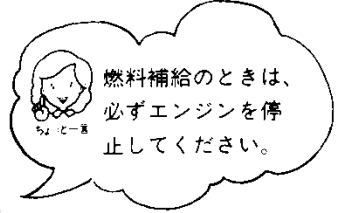 燃料補給のときは、
必ずエンジンを停
止してください。
ちょっと一言